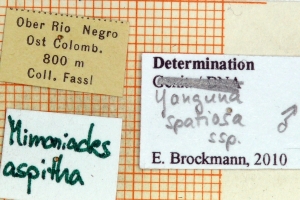 Ober Rio Negro
Ost Colomb.
800 m
Coll. Fassl
Mimoniades
aspitha
Determination
Yanguna
spatiosa
ssp. ♂
E. Brockmann, 2010